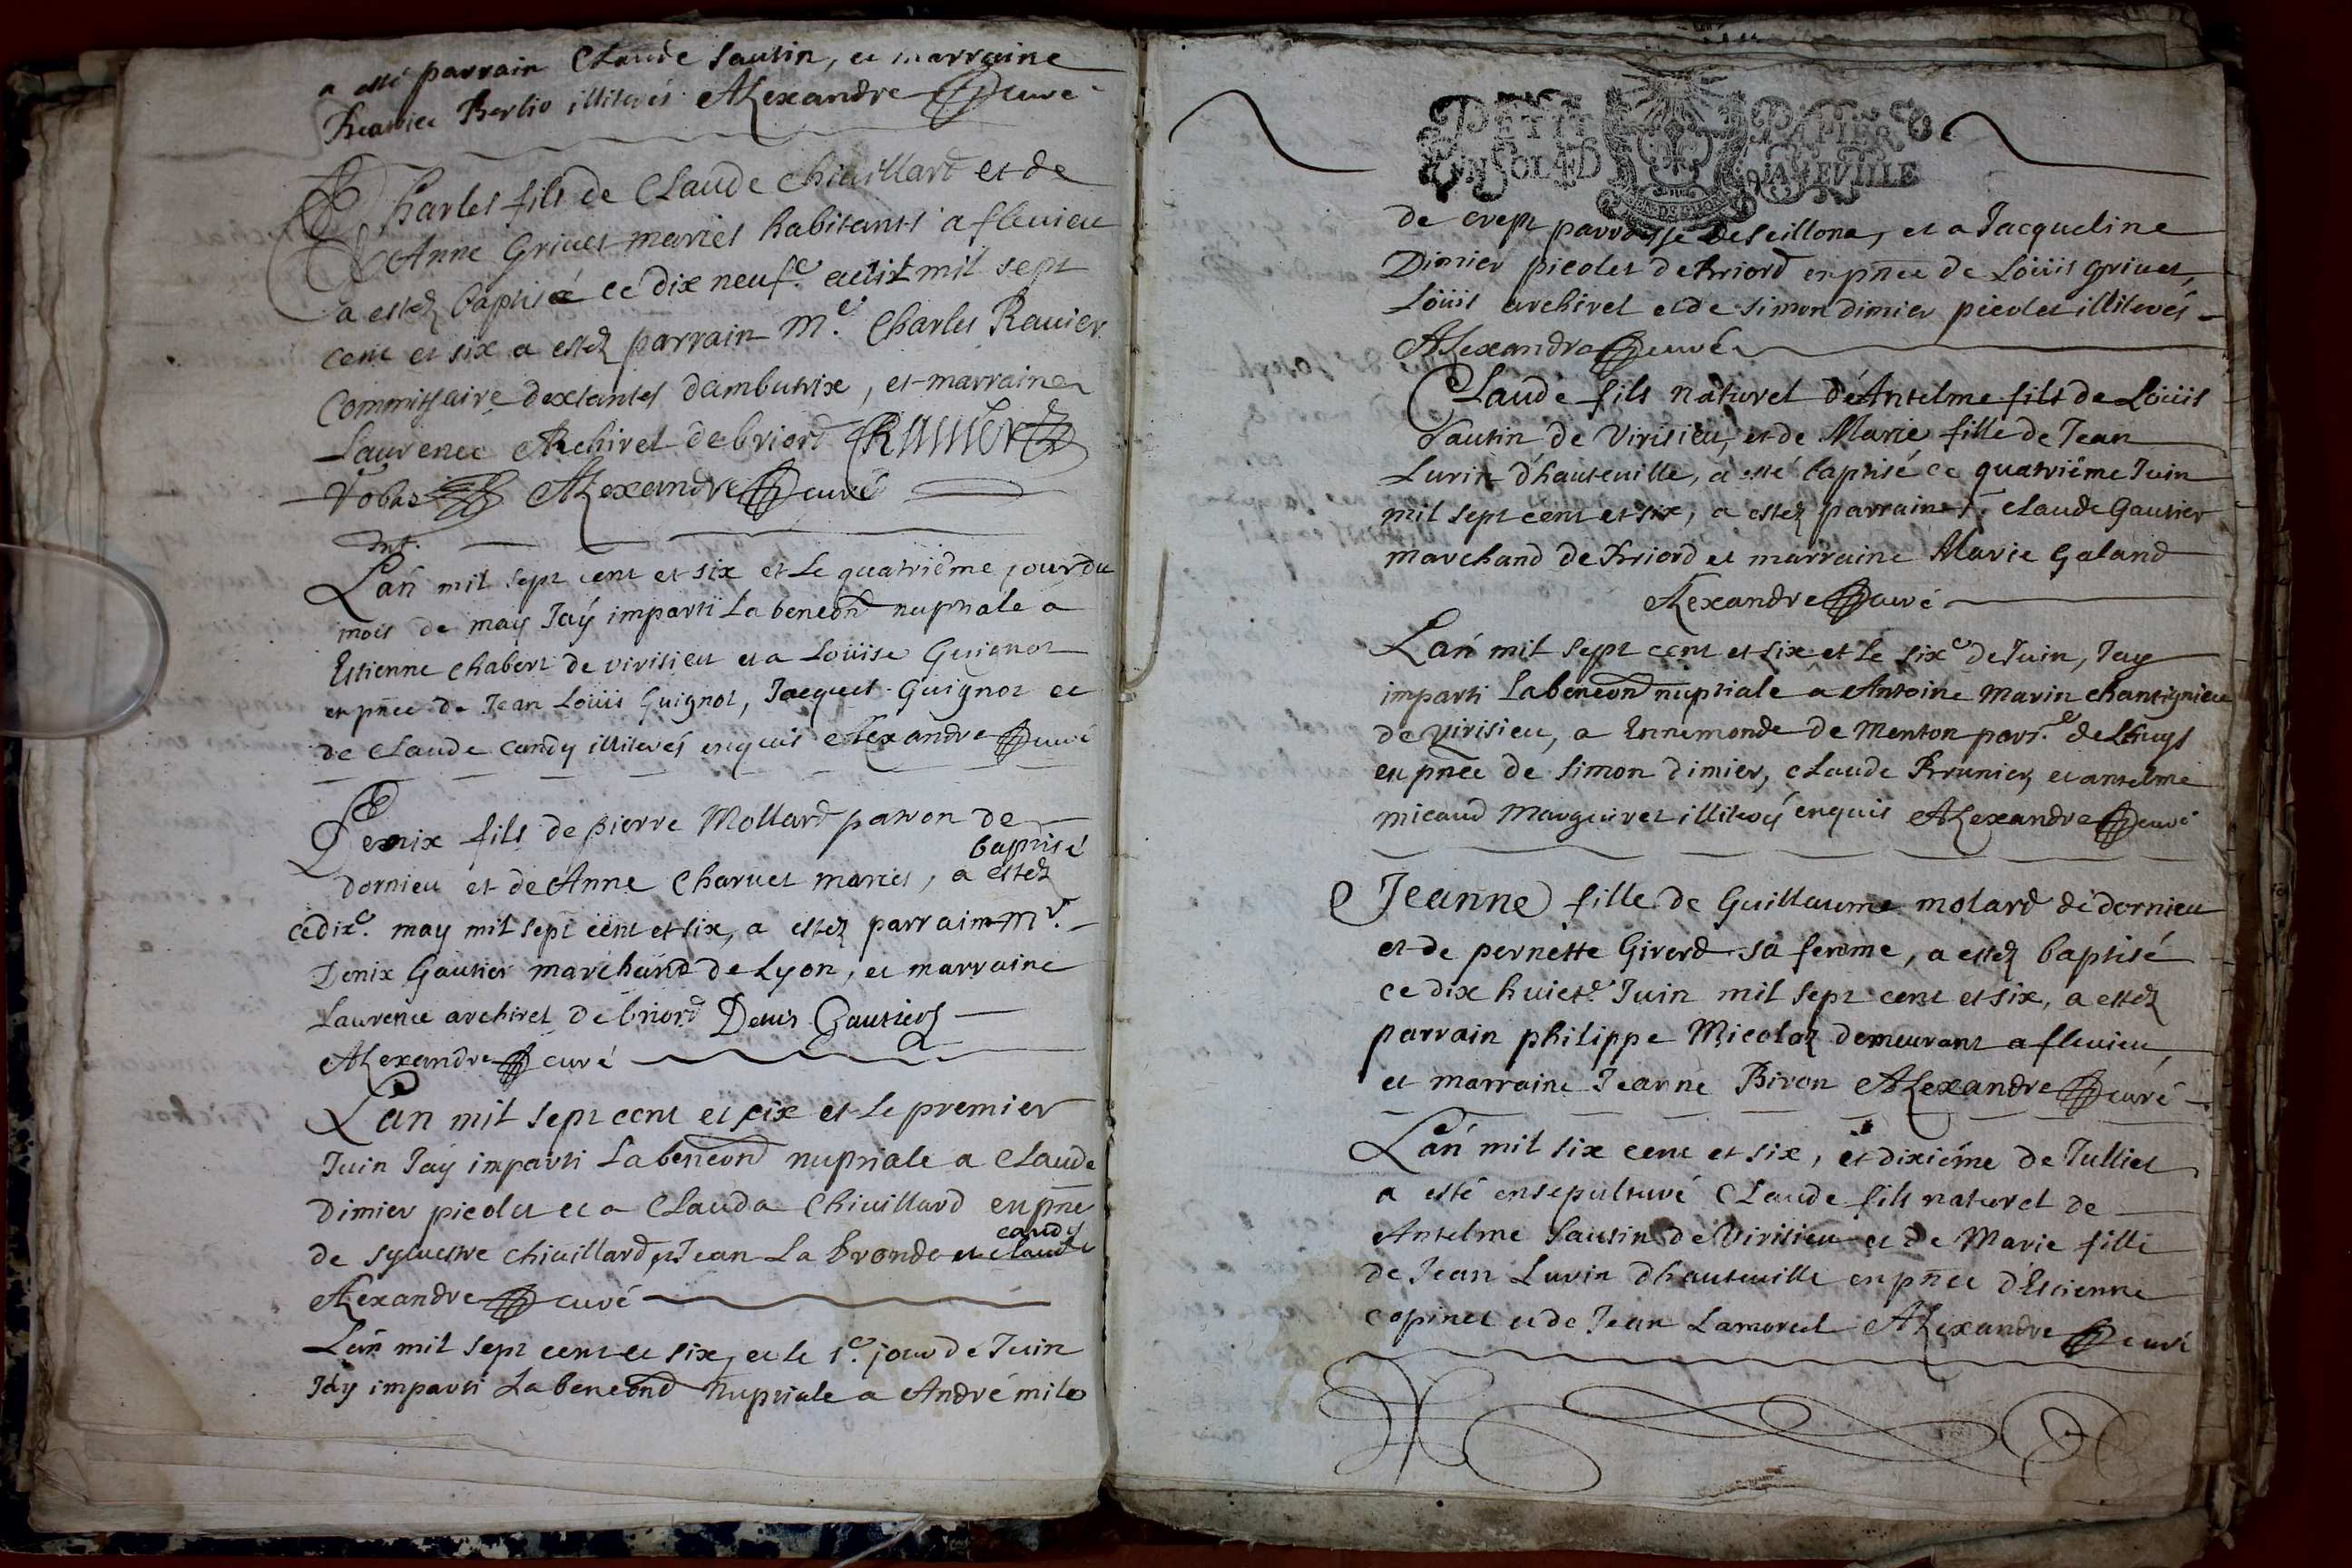 a esté parrain Claude Sautin, et marraine
Berlio illiterés Alexandre curé
Charles fils de Claude Chiuillard et de
Anne Griuet mariés habitants a fleuieu
a estez baptisé ce dix neuf.e mil sept
cent et six a estez parrain M.e Charles Rauier
Commissaire dextantes dambutrix, et marraine
Laurence Archiret de briord Rauier
Alexandre curé
Lan mil sept cent et six et le quatriême jour du
mois de may Jaÿ imparti la beneon̄d nuptiale a
Estienne Chabert de virisieu et a Loüise Guignot
en pn̄ce de Jean Loüis Guignot, Jacques Guignot et
de Claude Candy illiterés enquis Alexandre curé
Denix fils de pierre Mollard patron de
baptisé
dornieu et de Anne Charuet mariés, a estez
ce dix.e may mil sept cent et six, a estez parrain Mr.
Denix Gautier marchand de Lyon, et marraine
Laurence archiret de briord Denis Gautier
Alexandre curé
Lan mil sept cent et six et le premier
Juin Jaÿ imparti la beneon̄d nuptiale a Claude
Dimier picolet et a Clauda Chiuillard en pn̄ce
candy
de syluestre chiuillard, et Jean La bronde et claude
Alexandre curé
Lan mil sept cent et six, et le 1.e jour de Juin
Jaÿ imparti La beneon̄d Nuptiale a André
PETIT PAPIER
UN SOL 4 D LA FEUILLE
de crept parroisse de seillona, et a Jacqueline
Dimier picolet de Briord en pn̄ce de Loüis griuet,
Loüis archiret et de simon dimier picolet illiterés
Alexandre curé
Claude fils naturel d'Antelme fils de Loüis
Sautin de Virisieu, et de Marie fille de Jean
Luvin d'hauteuille, a esté baptisé ce quatriême Juin
mil sept cent et six, a estez parrain Claude Gautier
marchand de Briord et marraine Marie Galand
Alexandre curé
Lan mil sept cent et six et le six.e de Juin, Jay
imparti La beneon̄d nuptiale a Antoine Marin chantignieu
de virisieu, a Ennemonde de Menton parr.e de
en pn̄ce de Simon dimier, Claude Brunier, et antelme
micaud Marguiret illiterés enquis Alexandre curé
Jeanne fille de Guillaume molard de dornieu
et de pernette Girerd sa femme, a estez baptisé
ce dix huict.e Juin mil sept cent et six, a estez
parrain philippe Micoloz demeurant a fleuieu,
et marraine Jeanne Biron Alexandre curé
Lan mil six cent et six, et dixiême de Julliet
a esté ensepulturé Claude fils naturel de
Antelme Sautin de Virisieu et de Marie fille
de Jean Luvin dhauteuille en pn̄ce d'Estienne
copinet et de Jean Lamoret Alexandre curé